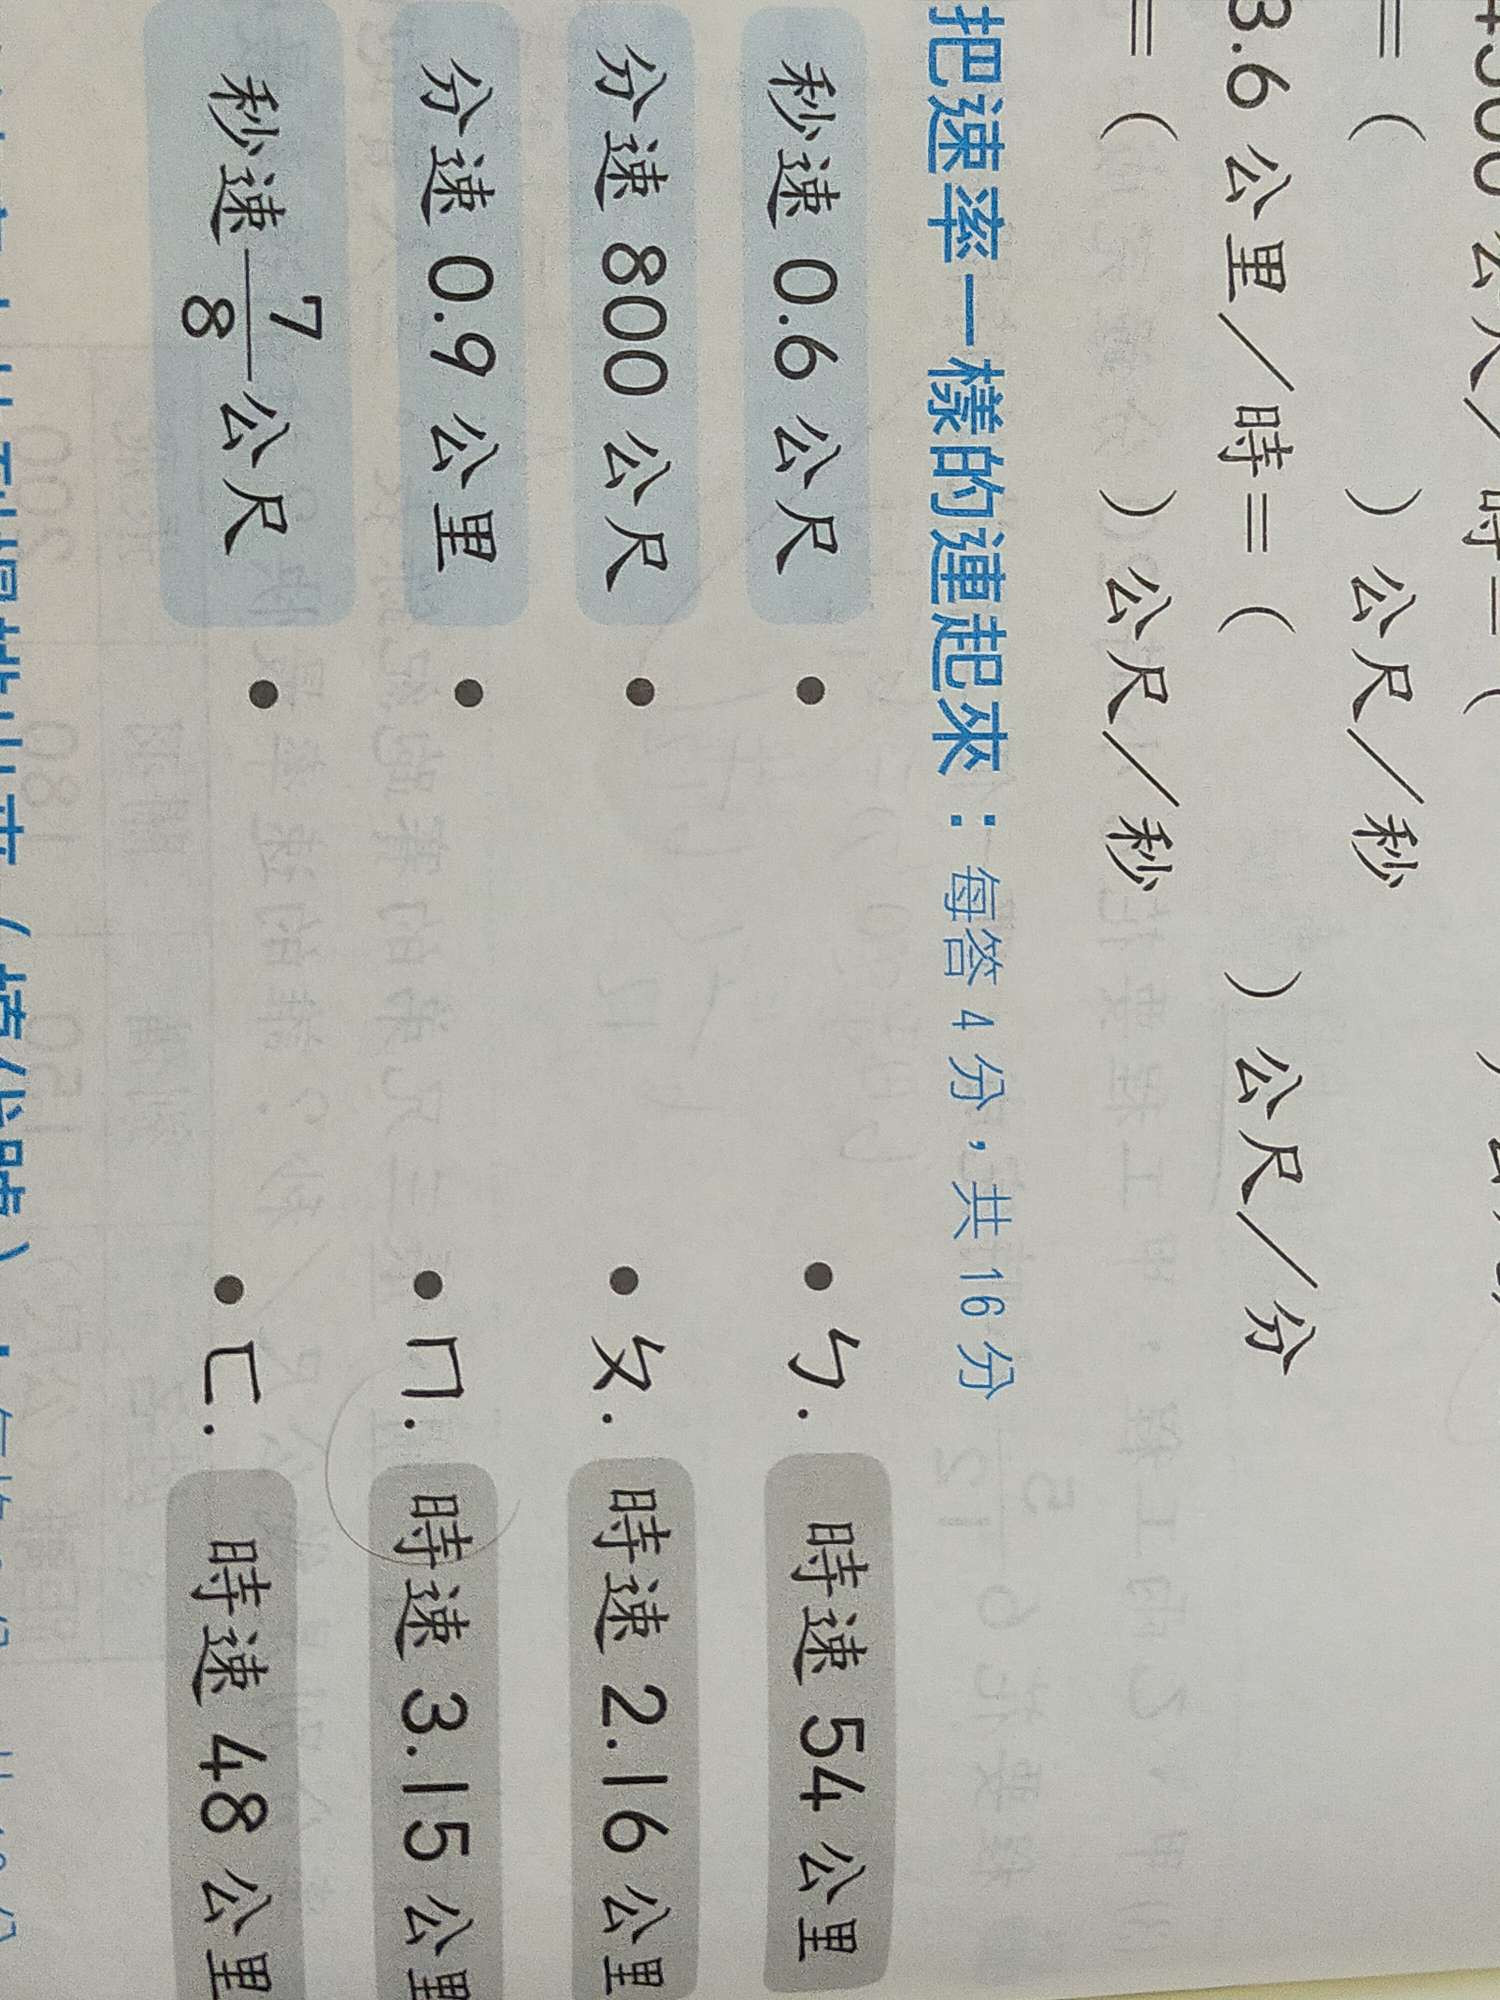 = (    ) 公尺／秒
3.6 公里／時 = (    ) 公尺／分
= (    ) 公尺／秒
把速率一樣的連起來：每答 4 分，共 16 分
秒速 0.6 公尺 • • ㄅ. 時速 54 公里
分速 800 公尺 • • ㄆ. 時速 2.16 公里
分速 0.9 公里 • • ㄇ. 時速 3.15 公里
秒速 7/8 公尺 • • ㄈ. 時速 48 公里